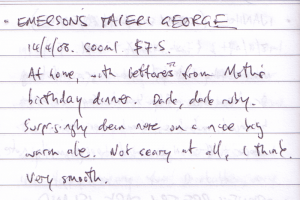 • EMERSON'S TAIERI GEORGE
14/9/08. 500ml $7.5.
At home, with leftovers from Moth's
birthday dinner. Dark, dark ruby.
Surprisingly clean nose on a nice big
warm ale. Not scary at all, I think.
Very smooth.